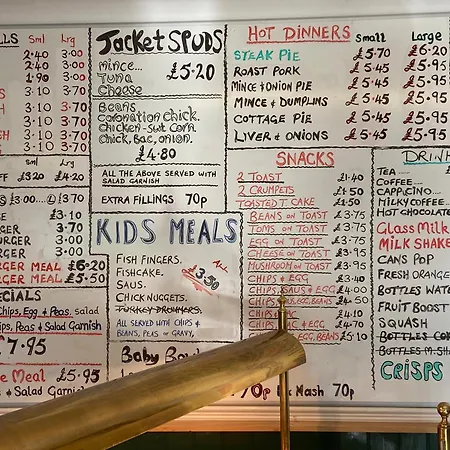 LLS Sml Lrg
2·40 3·00
2·40 3·00
1·90 3·00
3·10 3·70
3·10 3·70
3·10 3·70
3·10 3·70
Sml Lrg
£3.20 £4.20
£3·10
3·70
BURGER 3·00
BURGER 3·70
BURGER MEAL £6·20
BURGER MEAL £5·50
SPECIALS
Chips, Egg & Peas. Salad
Chips, Peas & Salad Garnish
£7·95
Meal £5·95
& Salad Garnish
Jacket SPUDS
Mince...
Tuna
Cheese
£5·20
Beans,
Coronation Chick.
Chicken-Swt Corn.
Chick, Bac, Onion.
£4·80
ALL THE ABOVE SERVED WITH
SALAD GARNISH
EXTRA FILLINGS 70p
KIDS MEALS
FISH FINGERS.
FISHCAKE.
SAUS.
CHICK NUGGETS.
TURKEY DRUMMERS.
All £3·50
ALL SERVED WITH CHIPS &
BEANS, PEAS, OR GRAVY,
Baby Bowl
HOT DINNERS Small Large
STEAK PIE £5·70 £6·20
ROAST PORK £5·45 £5·95
MINCE & ONION PIE £5·45 £5·95
MINCE & DUMPLINS £5·45 £5·95
COTTAGE PIE £5·45 £5·95
LIVER & ONIONS £5·45 £5·95
SNACKS
2 TOAST £1·40
2 CRUMPETS £1·50
TOASTED T CAKE £1·50
BEANS ON TOAST £3·75
TOMS ON TOAST £3·75
EGG ON TOAST £3·75
CHEESE ON TOAST £3·95
MUSHROOM ON TOAST £3·95
CHIPS & EGG £3·40
CHIPS, SAUS & EGG £4·00
CHIPS, EGG, BEANS £4·50
CHIPS £4·10
CHIPS & EGG £4·70
CHIPS EGG, BEANS £5·10
70p Ex Mash 70p
DRIN
TEA
COFFEE
CAPPICINO...
MILKY COFFEE...
HOT CHOCOLATE
Glass Milk
MILK SHAKE
CANS POP
FRESH ORANGE
BOTTLES WATE
FRUIT BOOST
SQUASH
BOTTLES CO
BOTTLES M.SH
CRISPS